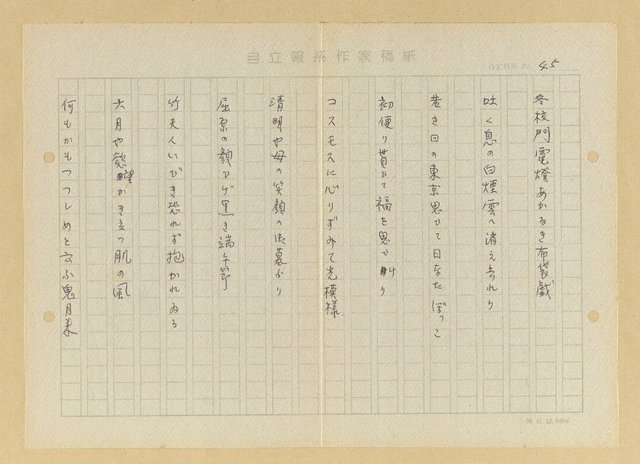 自立報系作家稿紙
45
冬 門電燈あかるき布袋戯
吐く息の白煙雲へ消え去れり
若き日の東京思 て日なたぼっこ
初便り貰 て福を思
コスモスに て光模様
清明や母の笑顔の御墓 り
屈原の顔 げ 端午
竹夫人いびき恐れず抱かれゐる
六月や慾望かき立つ肌の風
何もかもつつしめと云ふ鬼月来